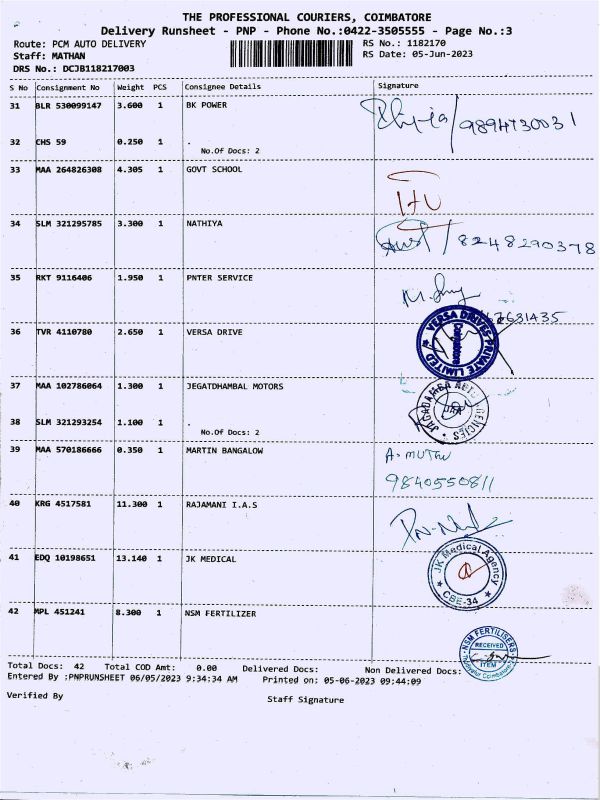 THE PROFESSIONAL COURIERS, COIMBATORE
Delivery Runsheet - PNP - Phone No.:0422-3505555 - Page No.:3
Route: PCM AUTO DELIVERY RS No.: 1182170
Staff: MATHAN RS Date: 05-Jun-2023
DRS No.: DCJB118217003
S No Consignment No Weight PCS Consignee Details Signature
31 BLR 530099147 3.600 1 BK POWER
9894730031
32 CHS 59 0.250 1 .
No.Of Docs: 2
33 MAA 264826308 4.305 1 GOVT SCHOOL
34 SLM 321295785 3.300 1 NATHIYA
8248290378
35 RKT 9116406 1.950 1 PNTER SERVICE
36 TVR 4110780 2.650 1 VERSA DRIVE
VERSA DRIVES PRIVATE LIMITED
Coimbatore
37 MAA 102786064 1.300 1 JEGATDHAMBAL MOTORS
JAGADAMBA AUTO AGENCIES
38 SLM 321293254 1.100 1 .
No.Of Docs: 2
39 MAA 570186666 0.350 1 MARTIN BANGALOW
A. MUTHU
9840550811
40 KRG 4517581 11.300 1 RAJAMANI I.A.S
41 EDQ 10198651 13.140 1 JK MEDICAL
JK Medical Agency
CBE-34
42 MPL 451241 8.300 1 NSM FERTILIZER
NSM FERTILISERS
RECEIVED
ITEM
Total Docs: 42 Total COD Amt: 0.00 Delivered Docs: Non Delivered Docs:
Entered By :PNPRUNSHEET 06/05/2023 9:34:34 AM Printed on: 05-06-2023 09:44:09
Verified By Staff Signature